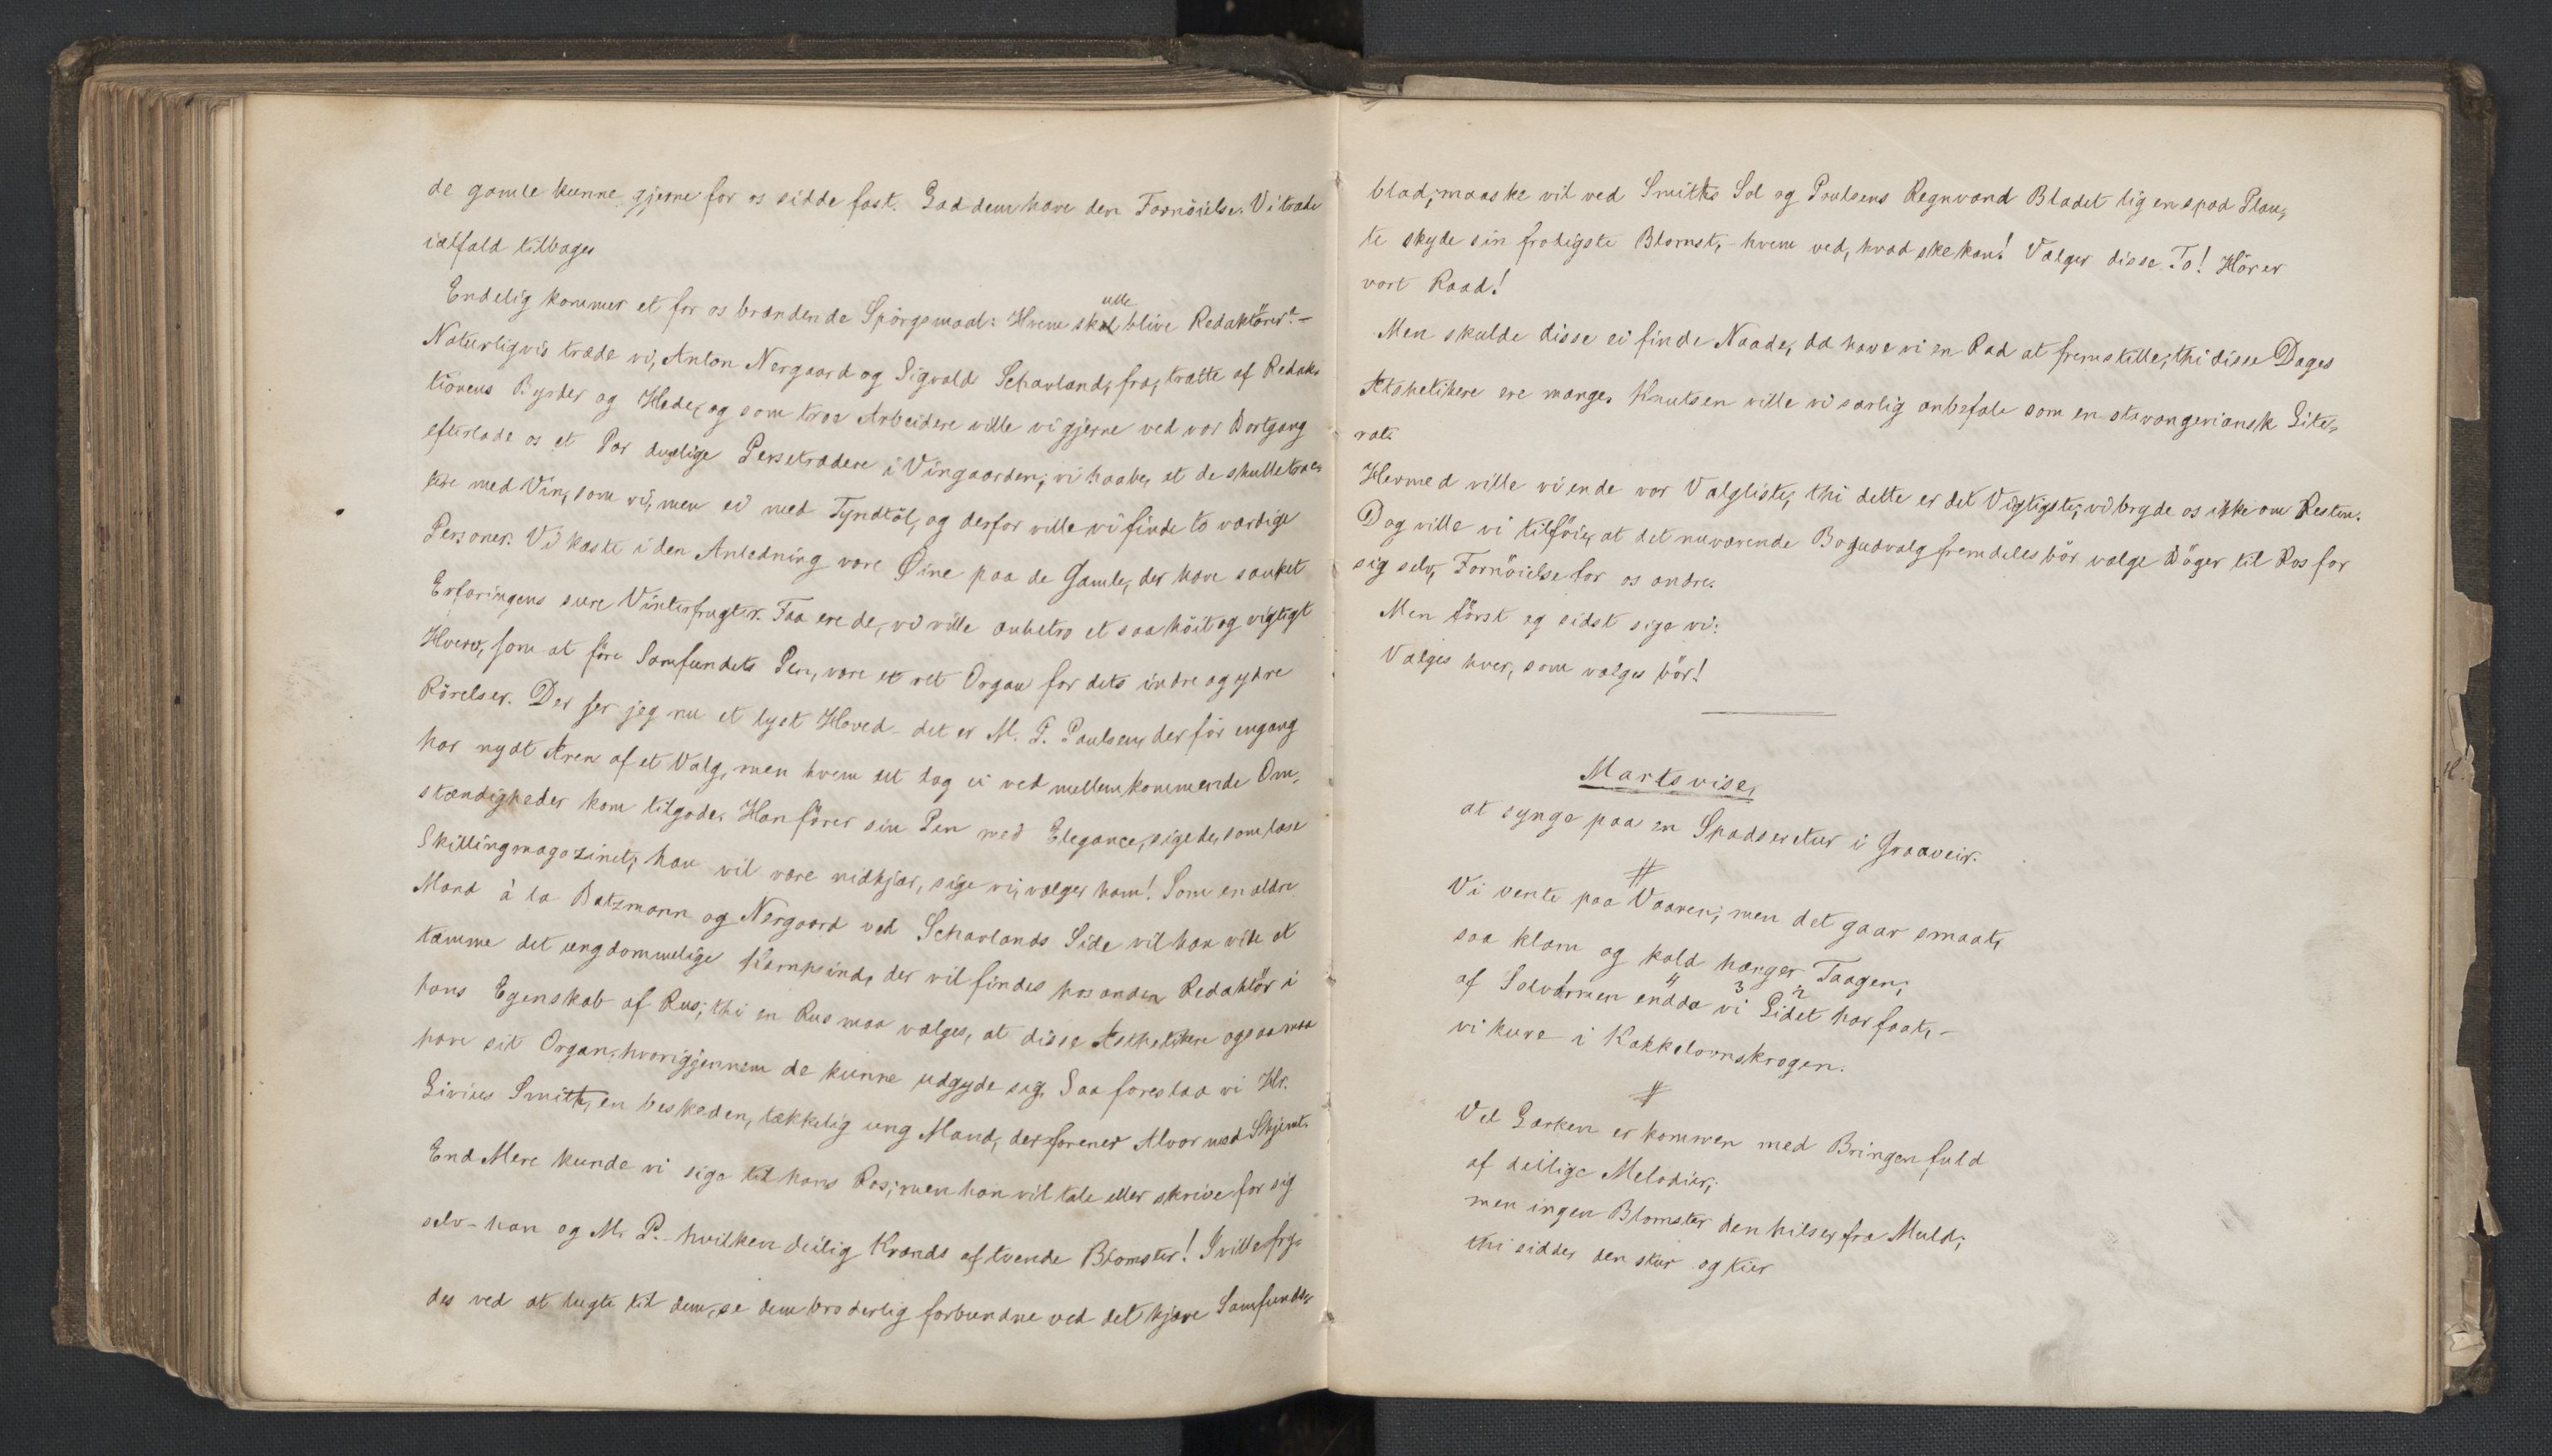 de gamle kunne gjerne for os sidde fast. Lad dem have den Fornöielse. Vi træde
ialfald tilbage.
Endelig kommer et for os brændende Spörgsmaal: Hvem skulle blive Redaktörer? –
Naturligvis træde vi, Anton Nergaard og Sigvald Schavland, fra, trætte af Redak-
tionens Byrder og Hede, og som tro Arbeidere ville vi gjerne ved vor Bortgang
efterlade os et Par duelige Persetrædere i Vingaarden; vi haabe, at de skulle trac-
tere med Vin, som vi, men ei med Tyndtöl, og derfor ville vi finde to værdige
Personer. Vi kaste i den Anledning vore Øine paa de Gamle, der have sanket
Erfaringens sure Vinterfrugter. Faa ere de, vi ville anbetro et saa höit og vigtigt
Hverv, som at före Samfundets Pen, være et ret Organ for dets indre og ydre
Rörelser. Der ser jeg nu et lyst Hoved – det er M. P. Paulsen, der för engang
har nydt Æren af et Valg, men hvem det dog ei ved mellemkommende Om-
stændigheder kom tilgode. Han förer sin Pen med Elegance, sige de, som læse
Skillingmagazinet; han vil være nidkjær, sige vi; vælger ham! Som en ældre
Mand à la Batzmann og Nergaard ved Schavlands Side vil han vide at
tæmme det ungdommelige Kampsind, der vil findes hos anden Redaktör i
hans Egenskab af Rus; thi en Rus maa vælges, at disse Æsthetikere ogsaa maa
have sit Organ, hvorigjennem de kunne udgyde sig. Saa foreslaa vi Hr.
Livius Smith, en beskeden, tækkelig ung Mand, der forener Alvor med Skjemt.
End Mere kunde vi sige til hans Ros; men han vil tale eller skrive for sig
selv – han og M. P. – hvilken deilig Krands af tvende Blomster! I ville fry-
des ved at lugte til dem, se dem broderlig forbundne ved det kjære Samfunds-
blad; maaske vil ved Smiths Sol og Paulsens Regnvand Bladet lig en spæd Plan-
te skyde sin frodigste Blomst, – hvem ved, hvad ske kan! Vælger disse To! Hörer
vort Raad!
Men skulde disse ei finde Naade, da have vi en Rad at fremstille; thi disse Dages
Æsthetikere ere mange. Knutsen ville vi særlig anbefale som en stavangeriansk Lite-
rat.
Hermed ville vi ende vor Valgliste; thi dette er det Vigtigste; vi bryde os ikke om Resten.
Dog ville vi tilföie, at det nuværende Bogudvalg fremdeles bör vælge Böger til Ros for
sig selv, Fornöielse for os andre.
Men först og sidst sige vi:
Vælges hver, som vælges bör!
Martsvise,
at synge paa en Spadseretur i Graaveir.
Vi vente paa Vaaren; men det gaar smaat,
saa klam og kold hænger Taagen;
4 3 2
af Solvarmen endda vi Lidet har faat, –
vi kure i Kakkelovnskrogen.
Vel Lærken er kommen med Bringen fuld
af deilige Melodier;
men ingen Blomster den hilser fra Muld;
thi sidder den stur og tier